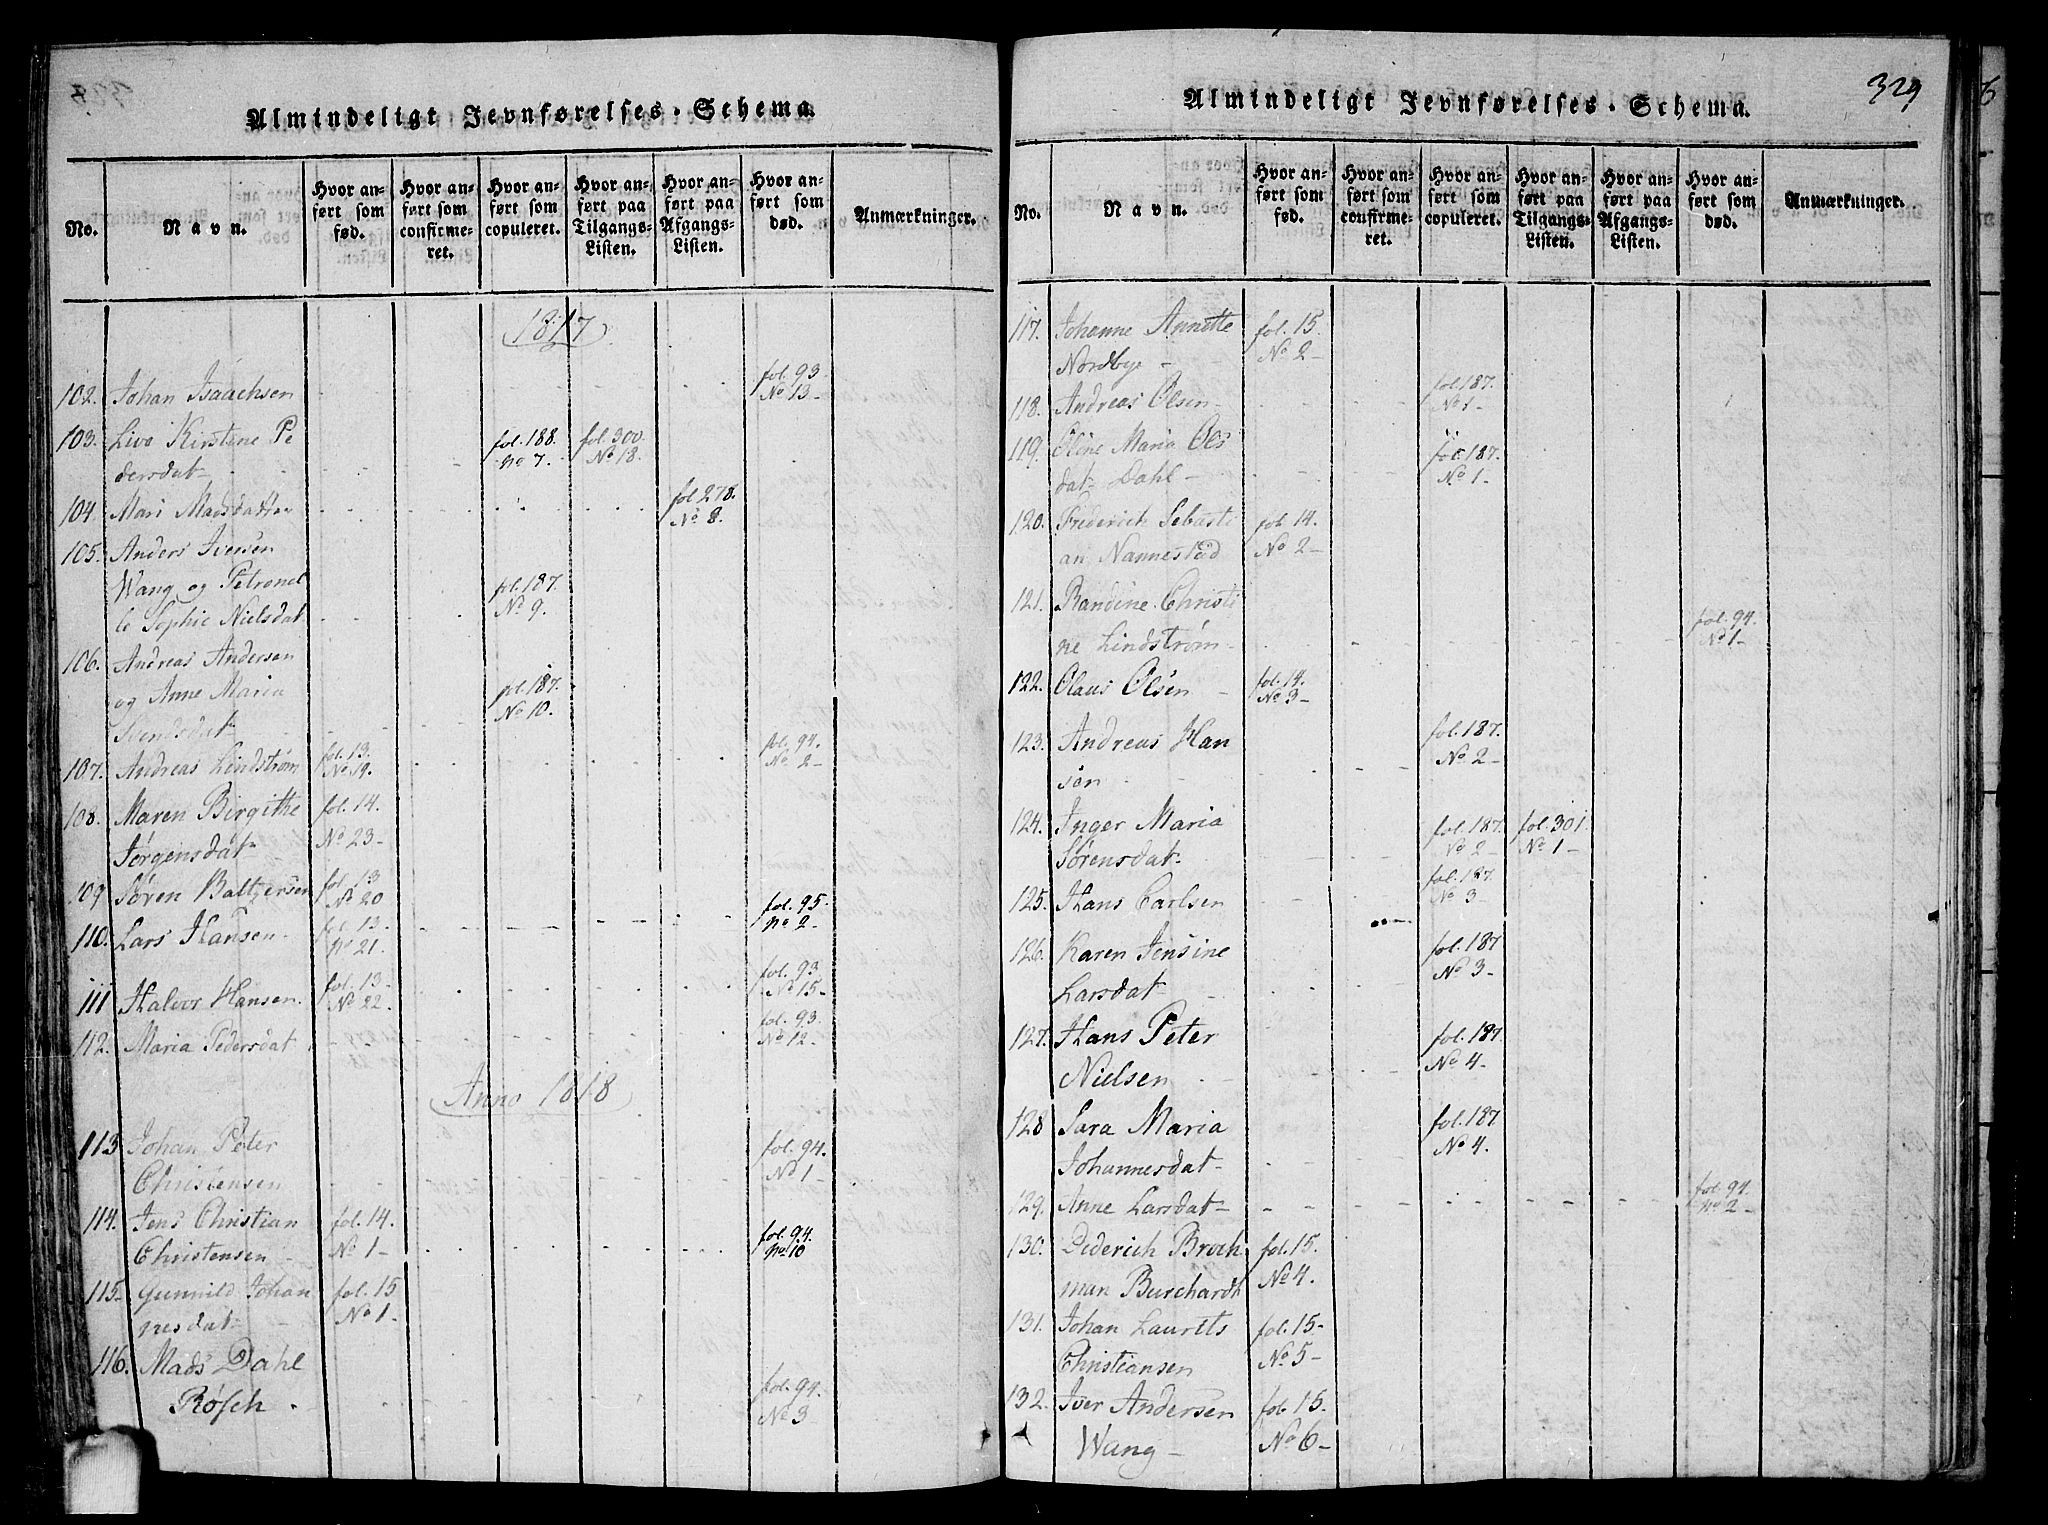 Almindeligt Jevnførelses-Schema.
No.
Navn.
Hvor anført som fød.
Hvor anført som confirmeret.
Hvor anført som copuleret.
Hvor anført paa Tilgangs-Listen.
Hvor anført paa Afgangs-Listen.
Hvor anført som død.
Anmærkninger.
1817
102. Johan Isaachsen fol. 93. No 13-
103. Live Kirstine Pe fol. 188. No 7. fol. 300. No 18.
dersdat-
104. Mari Madsdatter fol 278. No 8.
105. Anders Iversen
Wang og Petronel fol. 187. No 9.
le Sophie Nielsdat
106. Andreas Andersen
og Anne Maria fol. 187. No 10.
107. Andreas Lindstrøm fol. 13. No 19. fol. 94. No 2-
108. Maren Birgithe fol. 14. No 23-
Jørgensdat-
109 Søren Baltzersen fol. 13 No 20
110. Lars Hansen. fol. 13. No 21. fol. 95. No 2-
111 Halvor Hansen. fol. 13- No 22. fol. 93 No 15-
112. Maria Pedersdat fol. 93. No 12-
Anno 1818
113 Johan Peter fol. 94. No 1-
Christensen
114. Jens Christian fol. 14. No 1- fol. 94. No 10
Christensen
115- Gunnild Johan fol. 15 No 1-
nesdat-
116. Mads Dahl
Røsch fol. 94. No 3-
329
Almindeligt Jevnførelses-Schema.
No.
Navn.
Hvor anført som fød.
Hvor anført som confirmeret.
Hvor anført som copuleret.
Hvor anført paa Tilgangs-Listen.
Hvor anført paa Afgangs-Listen.
Hvor anført som død.
Anmærkninger.
117. Johanne Annette fol. 15. No 2-
Nordbye -
118. Andreas Olsen- fol. 187. No 1-
119. Oline Maria Ols fol. 187. No 1-
dat- Dahl-
120. Frederich Sebasti fol. 14. No 2-
an Nannestad
121. Randine Christi
ne Lindstrøm- fol. 94. No 1-
122. Olaus Olsen - fol. 14. No 3-
123. Andreas Han fol. 187. No 2-
sen
124. Inger Maria fol. 187. No 2- fol. 301. No 1-
Sørensdat-
125. Hans Carlsen fol. 187. No 3
126. Karen Jensine fol. 187 No 3-
Larsdat-
127. Hans Peter fol. 187. No 4.
Nielsen
128 Sara Maria fol. 187 No 4.
Johannesdat-
129. Anne Larsdat- fol. 94. No 2-
130. Diderich Broch fol. 15. No 4.
man Burchardt
131. Johan Laurits fol. 15- No 5-
Christiansen
132. Iver Andersen fol. 15. No 6-
Wang-